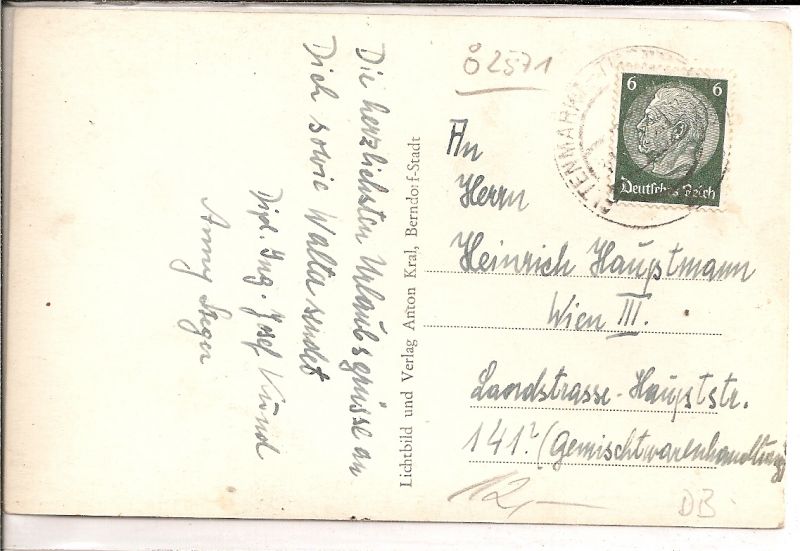 Die herzlichsten Urlaubsgrüsse an
Dich sowie Walta sendet
Dipl. Ing. Josef
Anny Steger
Lichtbild und Verlag Anton Kral, Berndorf-Stadt
Ö 2571
6 6
Deutsches Reich
ALTENMARKT
An
Herrn
Heinrich Hauptmann
Wien III.
Landstrasse-Hauptstr.
141 (Gemischtwarenhandlung)
12,–
DB